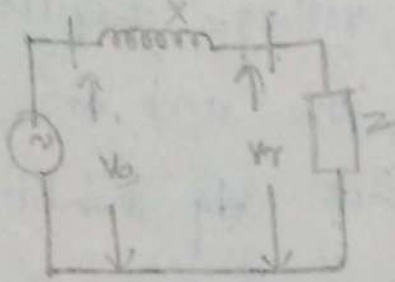 X
~
Vs
Vr
Z